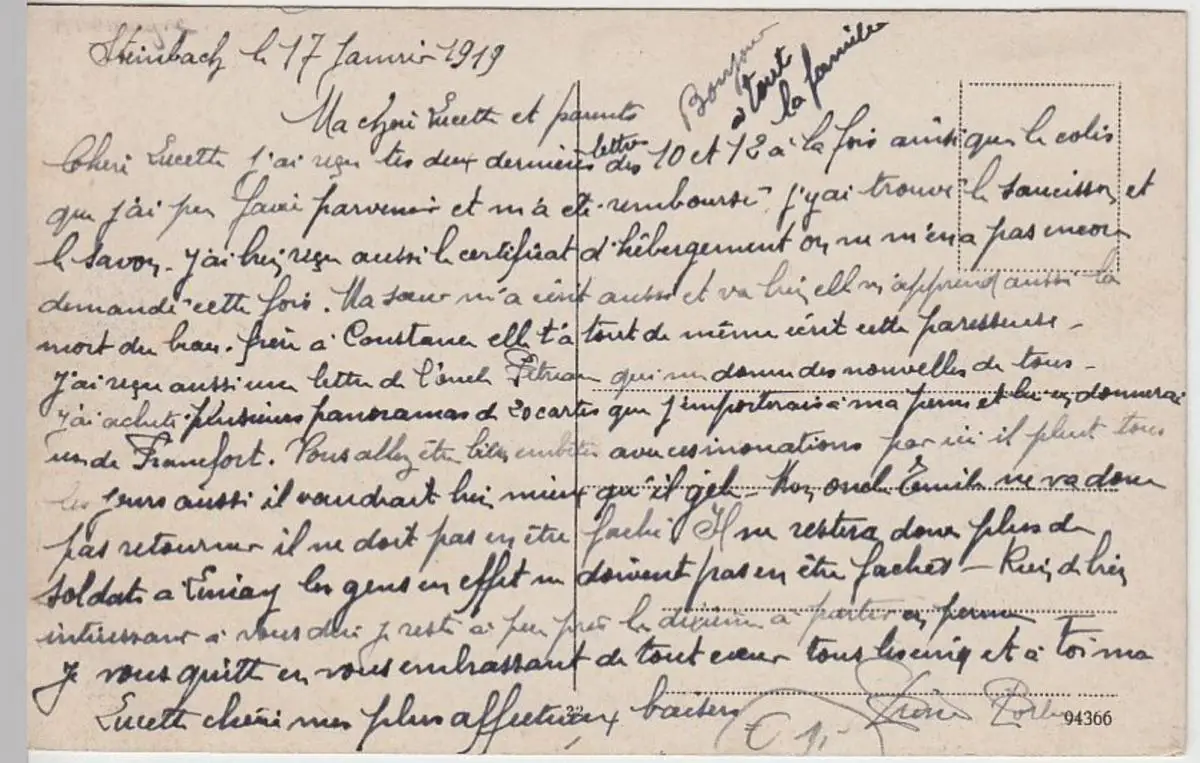 Steinbach le 17 Janvier 1919
Bonjour
à tout
la famille
Ma chèri Lucette et parents
Chèri Lucette j'ai reçu tes deux dernières lettre des 10 et 12 à la fois ainsi que le colis
que j'ai pu faire parvenir et m'a été remboursé. j'y ai trouvé le saucisson et
le savon. j'ai bien reçu aussi le certificat d'hébergement on ne m'en a pas encore
demandé cette fois. Ma sœur m'a écrit aussi et va bien elle m'apprend aussi la
mort du beau-frère à Constance elle t'a tout de même écrit cette paresseuse -
J'ai reçu aussi une lettre de l'oncle qui me donne des nouvelles de tous -
j'ai acheté plusieurs panoramas de 20 cartes que j'emporterais à ma perme et lui en donnerai
un de Francfort. Vous allez être bien embêtés avec ces inonations par ici il pleut tous
les jours aussi il vaudrait bien mieux qu'il gèle - Mon oncle Emile ne va donc
pas retourner il ne doit pas en être faché Il ne restera donc plus de
soldats à les gens en effet ne doivent pas en être fachés - Rien de bien
intéressant à vous dire je reste à peu près le dixième à partir en perme -
Je vous quitte en vous embrassant de tout cœur tous les cinq et à toi ma
Lucette chérie mes plus affectueux baisers
22
94366